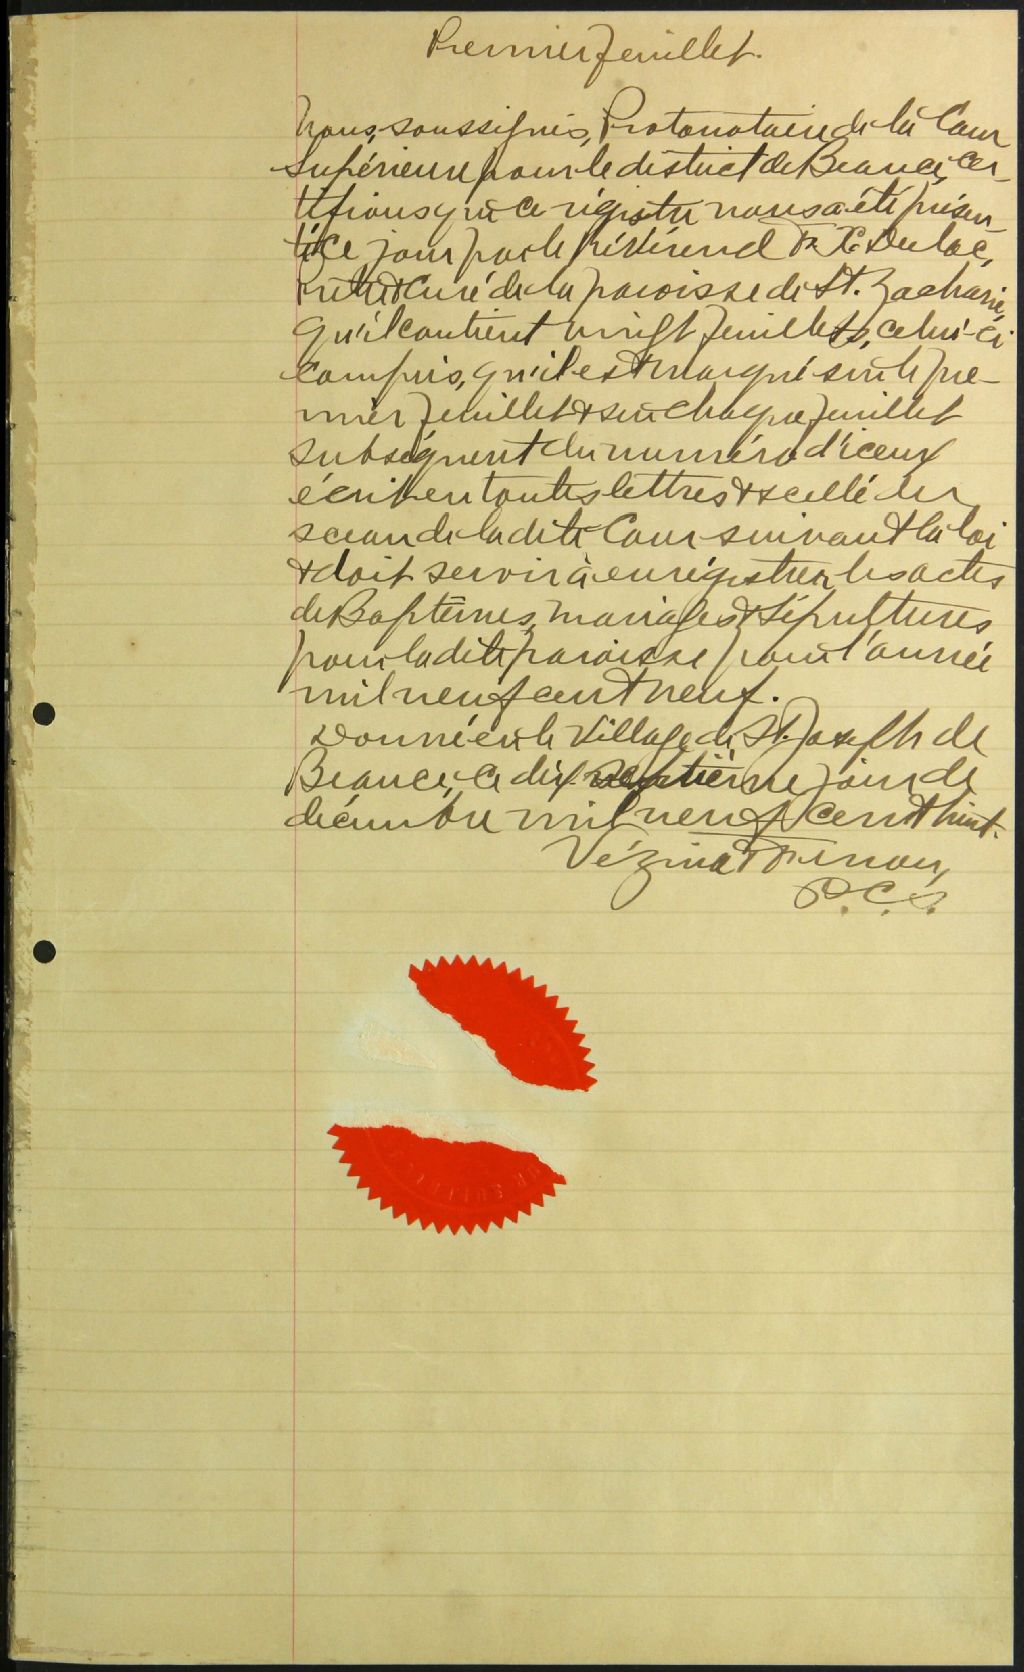 Premier feuillet.
Nous, soussignés, Protonotaire de la Cour
Supérieure pour le district de Beauce, cer-
tifions que ce régistre nous a été présen-
té ce jour par le Révérend F. X. Dulac,
Prêtre & Curé de la paroisse de St. Zacharie,
qu'il contient vingt feuillets, celui-ci
compris, qu'il est marqué sur le pre-
mier feuillet & sur chaque feuillet
subséquent du numéro d'iceux
écrit en toutes lettres & scellé du
sceau de la dite Cour suivant la loi
& doit servir à enrégistrer les actes
de Baptêmes, mariages & Sépultures
pour la dite paroisse pour l'année
mil neuf cent neuf.
Donné en le Village de St. Joseph de
Beauce, ce dix septième jour de
décembre mil neuf cent huit.
Vézina &
P.C.S.